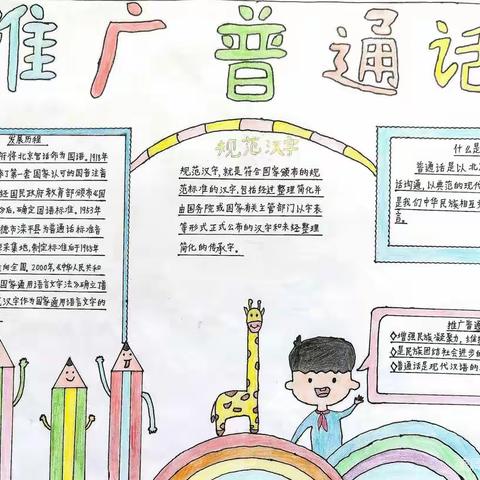 推广普通话
发展历程
府将北京官话命为国语。1918年
布了第一套国家认可的国音注音
经国民政府教育部颁布《国
》后,确定国语标准。1953年
德市滦平县为普通话标准音
采集地,制定标准后于1955年
向全国。2000年,《中华人民共和
国家通用语言文字法》确立普
范汉字作为国家通用语言文字的
规范汉字
规范汉字,就是符合国家颁布的规
范标准的汉字,包括经过整理简化并
由国务院或国家有关主管部门以字表
等形式正式公布的汉字和未经整理
简化的传承字。
什么是
普通话是以北
话沟通,以典范的现代
是我们中华民族相互交
言。
推广普通
增强民族凝聚力,维
是民族团结社会进步的
普通话是现代汉语的